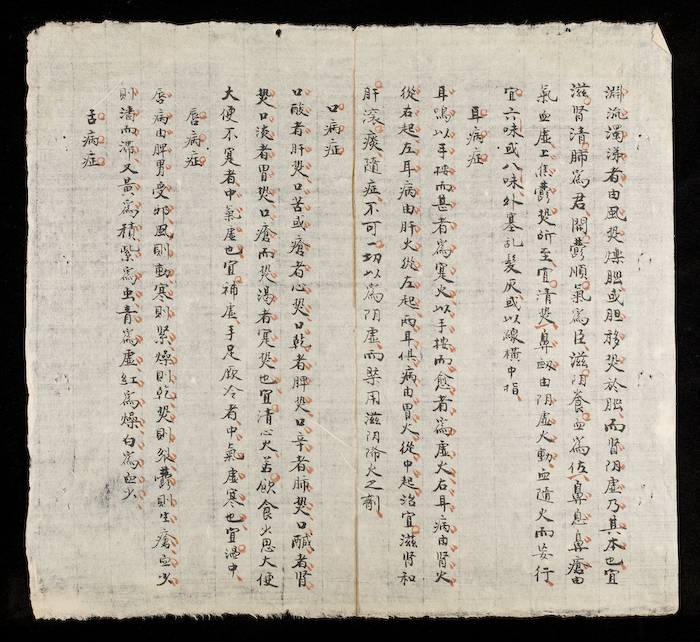 淵流濁涕者由風热爍腦或胆移热於腦而肾阴虚乃其本也宜
滋肾清肺為君開鬱順氣為臣滋阴養血為佐鼻息鼻瘡由
氣血虚上焦鬱热所至宜清热鼻衂由阴虚火動血隨火而妄行
宜六味或八味外塞乱髮灰或以線横中指
耳病症
耳鳴以手按而甚者為寔火以手按而愈者為虚火右耳病由肾火
從右起左耳病由肝火從左起両耳俱病由胃火從中起治宜滋肾和
肝滚痰隨症不可一切以為阴虚而禁用滋阴降火之剤
口病症
口酸者肝热口苦或瘡者心热口乾者脾热口辛者肺热口鹹者肾
热口淡者胃热口瘡而热渴者寔热也宜清心火若飲食少思大便
大便不寔者中氣虚也宜補虚手足厥冷者中氣虚寒也宜温中
唇病症
唇病由脾胃受邪風則動寒則紧燥則乾热則裂鬱則生瘡血少
則瀋而滞又黄為積紫為虫青為虚紅為燥白為血少
舌病症